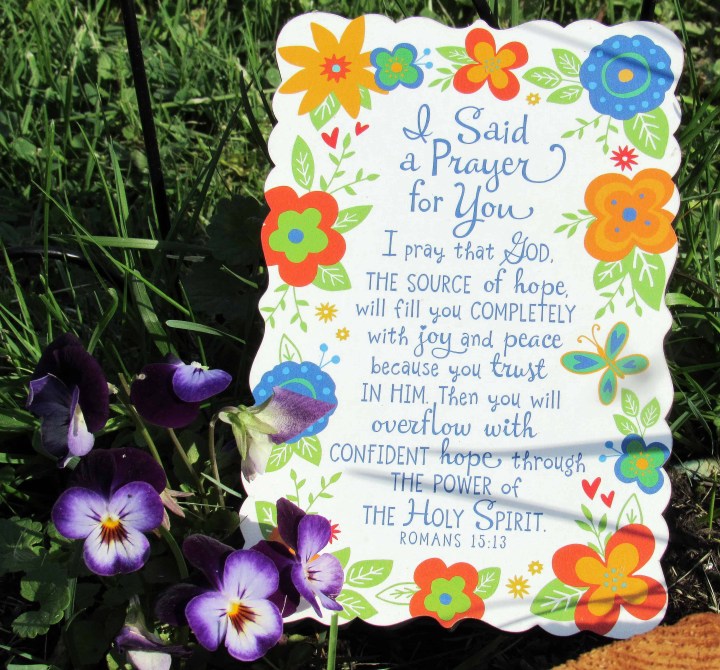 I Said
a Prayer
for You
I pray that GOD,
THE SOURCE of hope,
will fill you COMPLETELY
with joy and peace
because you trust
IN HIM. Then you will
overflow with
CONFIDENT hope through
THE POWER of
THE HOLY SPIRIT.
ROMANS 15:13